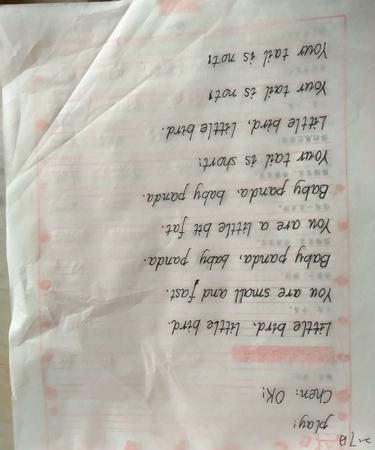 play!
Chen: OK!
Little bird, little bird.
You are small and fast.
Baby panda, baby panda.
You are a little bit fat.
Baby panda, baby panda.
Your tail is short!
Little bird, little bird.
Your tail is not!
Your tail is not!